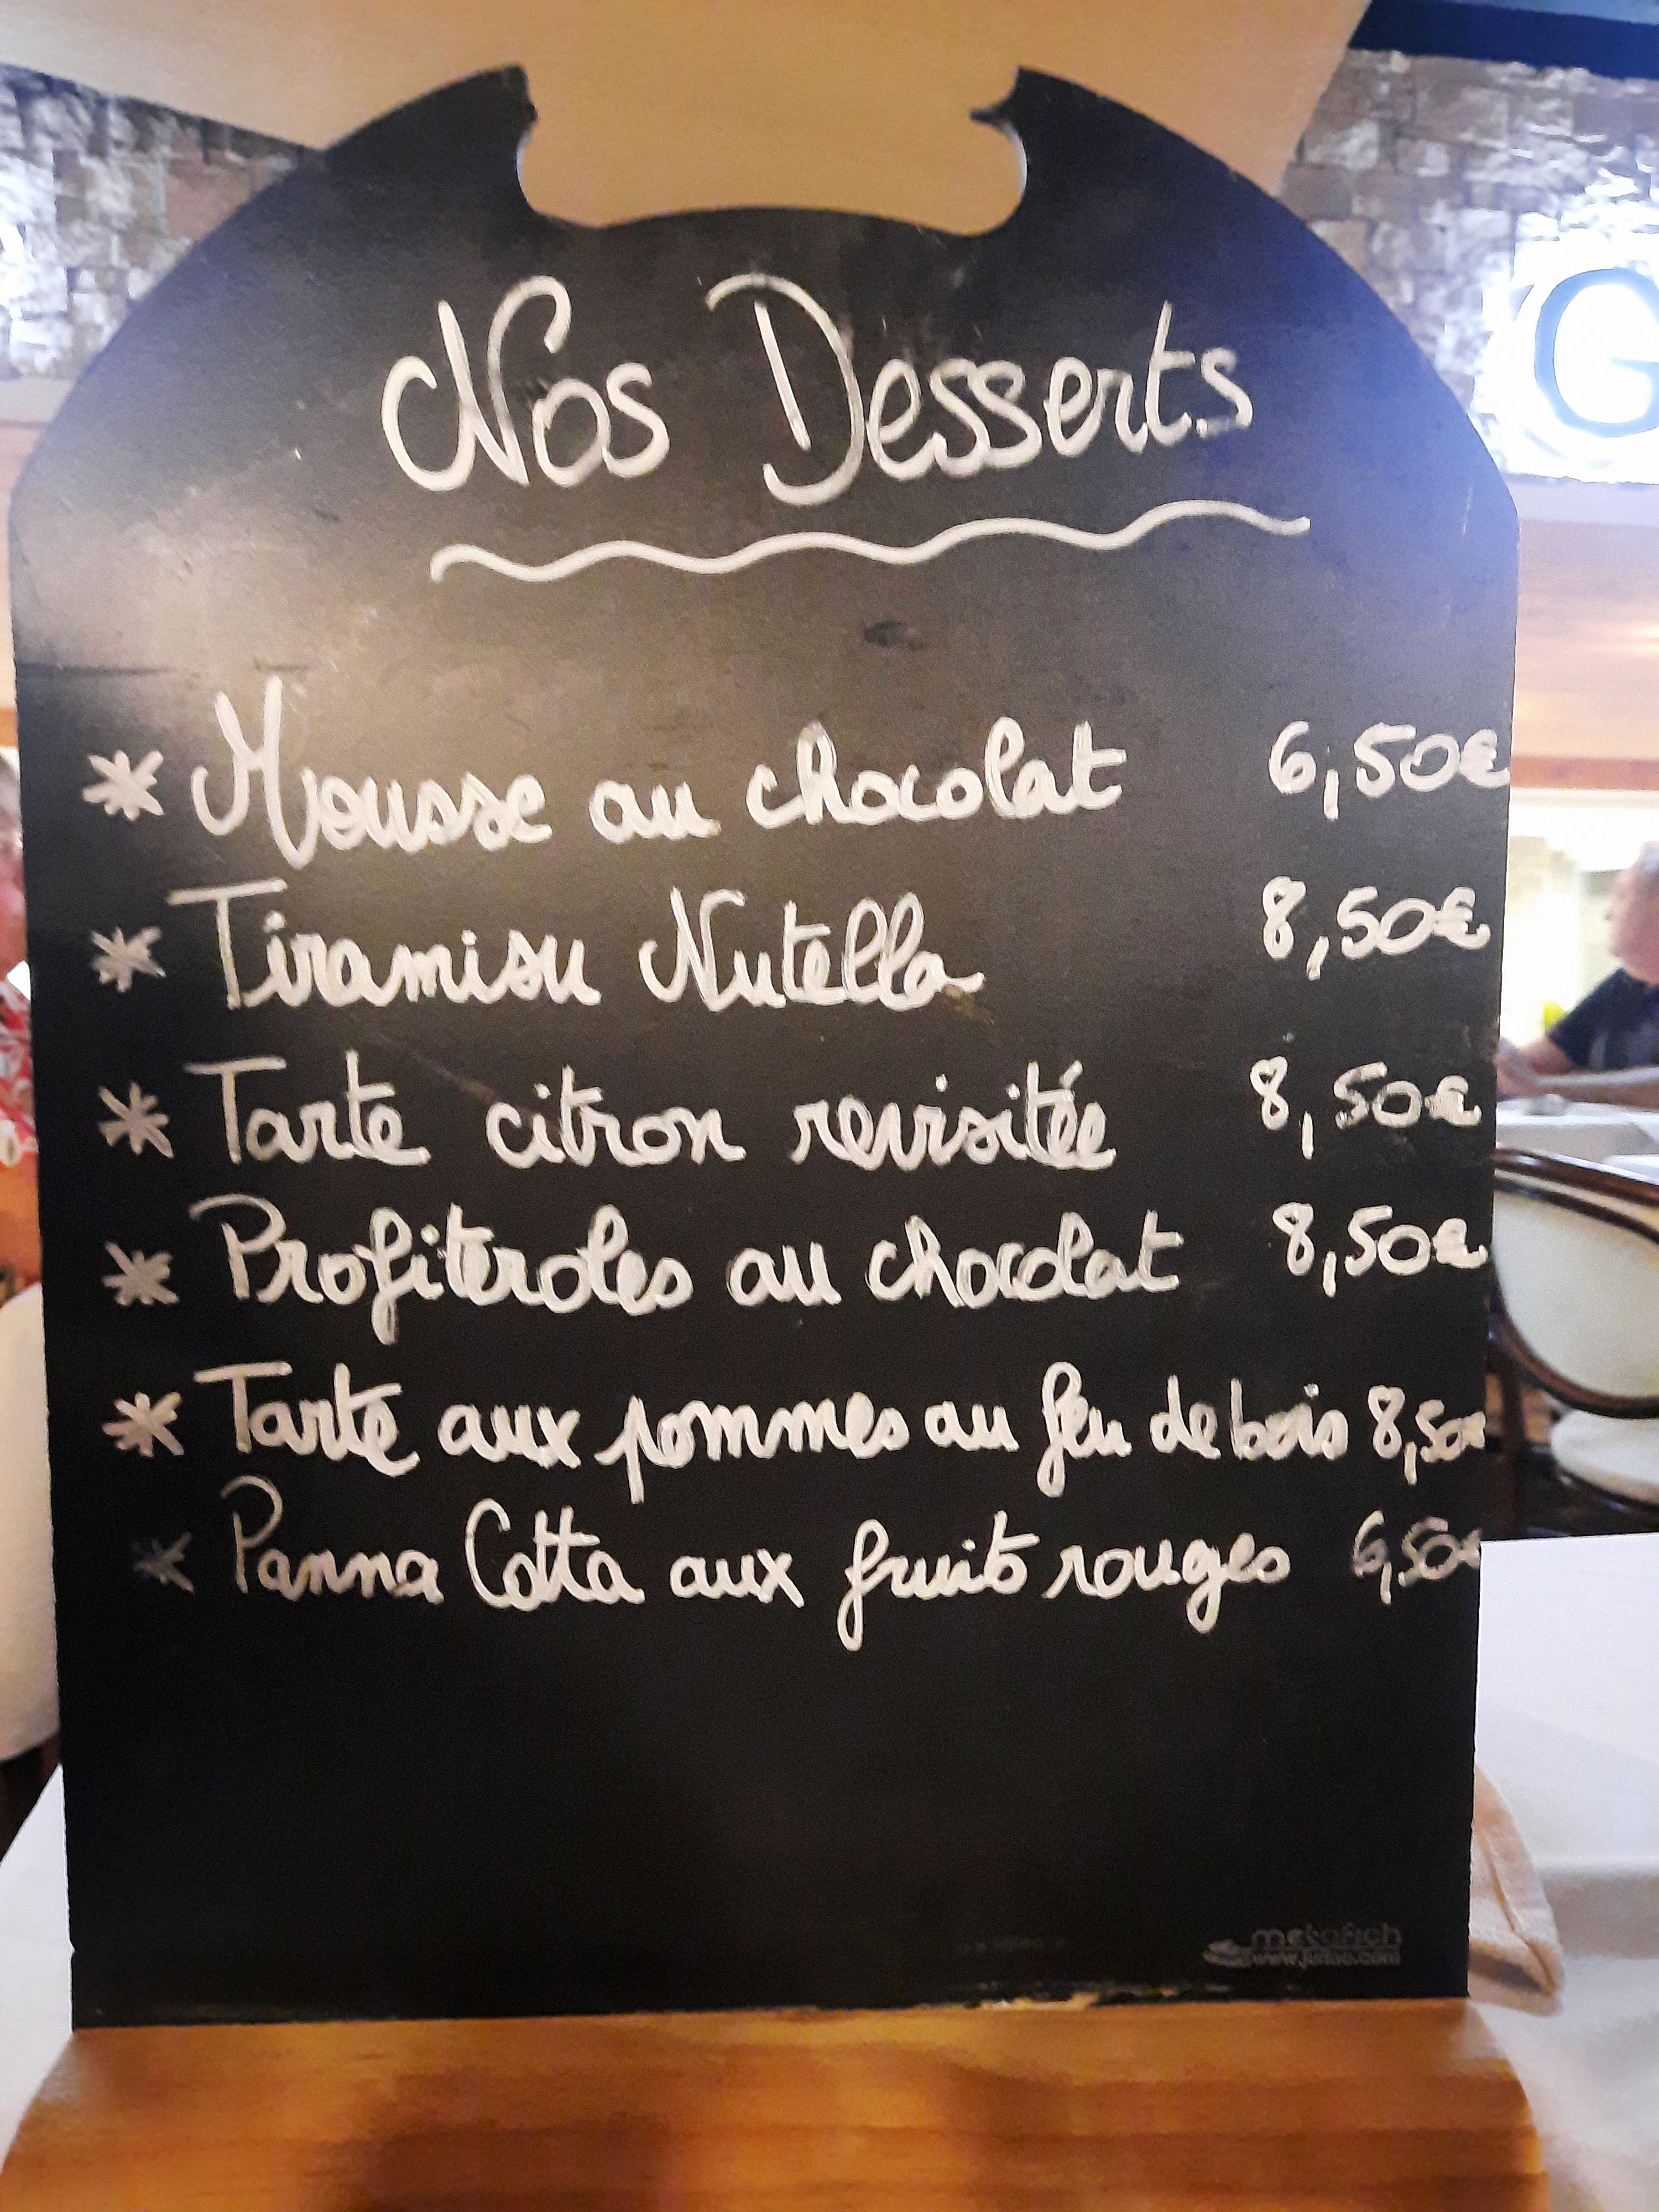 Nos Desserts
* Mousse au chocolat 6,50€
* Tiramisu Nutella 8,50€
* Tarte citron revisitée 8,50€
* Profiteroles au chocolat 8,50€
* Tarte aux pommes au feu de bois 8,50€
* Panna Cotta aux fruits rouges 6,50€
G